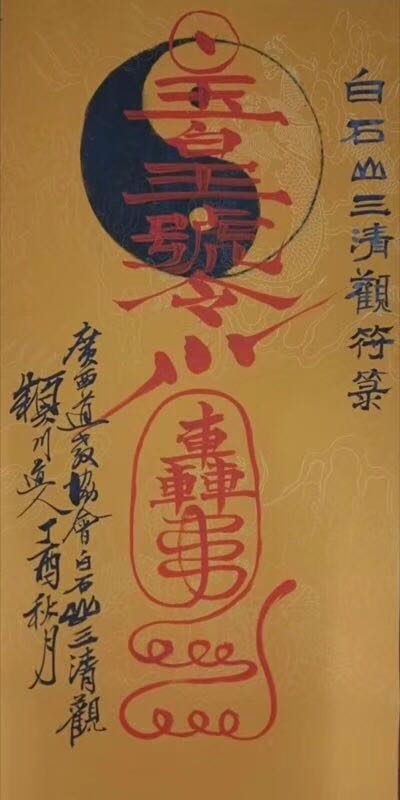 白石山三清觀符箓
玉皇號令
轟
廣西道教協會白石山三清觀
川道人丁酉秋月